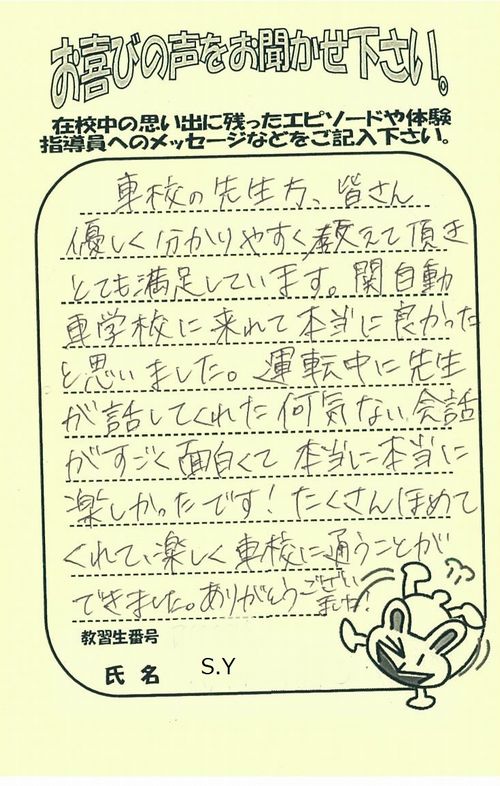 お喜びの声をお聞かせ下さい。
在校中の思い出に残ったエピソードや体験
指導員へのメッセージなどをご記入下さい。
車校の先生方、皆さん
優しく分かりやすく教えて頂き
とても満足しています。関自動
車学校に来れて本当に良かった
と思いました。運転中に先生
が話してくれた何気ない会話
がすごく面白くて本当に本当に
楽しかったです!たくさんほめて
くれて、楽しく車校に通うことが
できました。ありがとうございました!
教習生番号
氏名 S.Y